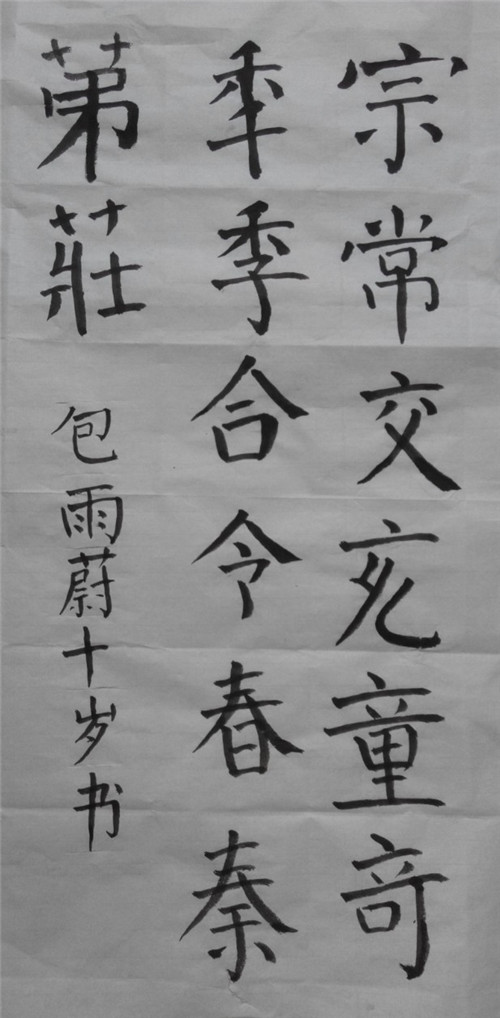 宗常交亥童竒
秊季合令春秦
苐莊
包雨蔚十岁书